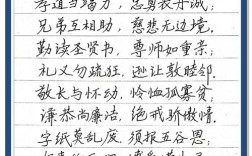 孝道当竭力，忠勇表丹诚；
兄弟互相助，慈悲无边境。
勤读圣贤书，尊师如重亲；
礼义勿疏狂，逊让敦睦邻。
敬长与怀幼，怜恤孤寡贫；
谦恭尚廉洁，绝戒骄傲情。
字纸莫乱废，须报五谷恩；